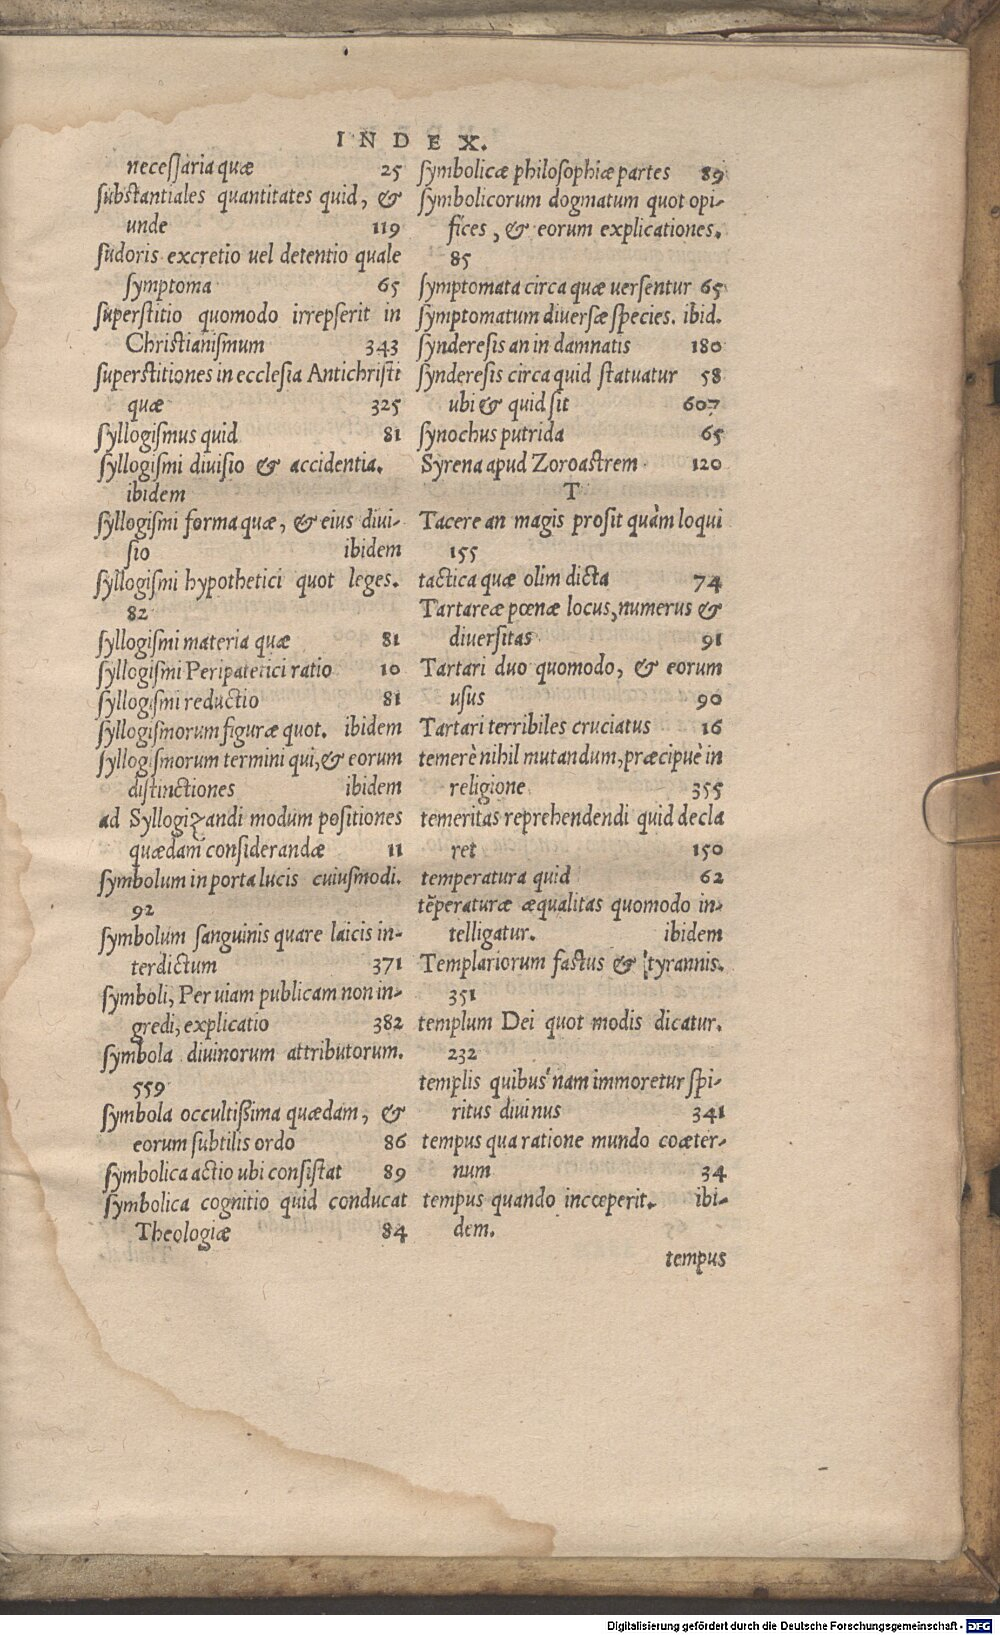 INDEX.
neceſſaria quæ 25
ſubſtantiales quantitates quid, &
unde 119
ſudoris excretio uel detentio quale
ſymptoma 65
ſuperſtitio quomodo irrepſerit in
Chriſtianiſmum 343
ſuperſtitiones in eccleſia Antichriſti
quæ 325
ſyllogiſmus quid 81
ſyllogiſmi diuiſio & accidentia.
ibidem
ſyllogiſmi forma quæ, & eius diui-
ſio ibidem
ſyllogiſmi hypothetici quot leges.
82
ſyllogiſmi materia quæ 81
ſyllogiſmi Peripatetici ratio 10
ſyllogiſmi reductio 81
ſyllogiſmorum figuræ quot. ibidem
ſyllogiſmorum termini qui, & eorum
diſtinctiones ibidem
ad Syllogizandi modum poſitiones
quædam conſiderandæ 11
ſymbolum in porta lucis cuiuſmodi.
92
ſymbolum ſanguinis quare laicis in-
terdictum 371
ſymboli, Per uiam publicam non in-
gredi, explicatio 382
ſymbola diuinorum attributorum.
559
ſymbola occultiſsima quædam, &
eorum ſubtilis ordo 86
ſymbolica actio ubi conſiſtat 89
ſymbolica cognitio quid conducat
Theologiæ 84
ſymbolicæ philoſophiæ partes 89
ſymbolicorum dogmatum quot opi-
fices, & eorum explicationes.
85
ſymptomata circa quæ uerſentur 65
ſymptomatum diuerſæ ſpecies. ibid.
ſyndereſis an in damnatis 180
ſyndereſis circa quid ſtatuatur 58
ubi & quid ſit 607
ſynochus putrida 65
Syrena apud Zoroaſtrem 120
T
Tacere an magis proſit quàm loqui
155
tactica quæ olim dicta 74
Tartareæ pœnæ locus, numerus &
diuerſitas 91
Tartari duo quomodo, & eorum
uſus 90
Tartari terribiles cruciatus 16
temerè nihil mutandum, præcipuè in
religione 355
temeritas reprehendendi quid decla
ret 150
temperatura quid 62
tẽperaturæ æqualitas quomodo in-
telligatur. ibidem
Templariorum faſtus & tyrannis.
351
templum Dei quot modis dicatur.
232
templis quibus nam immoretur ſpi-
ritus diuinus 341
tempus qua ratione mundo coæter-
num 34
tempus quando incœperit. ibi-
dem.
tempus
Digitalisierung gefördert durch die Deutsche Forschungsgemeinschaft - DFG